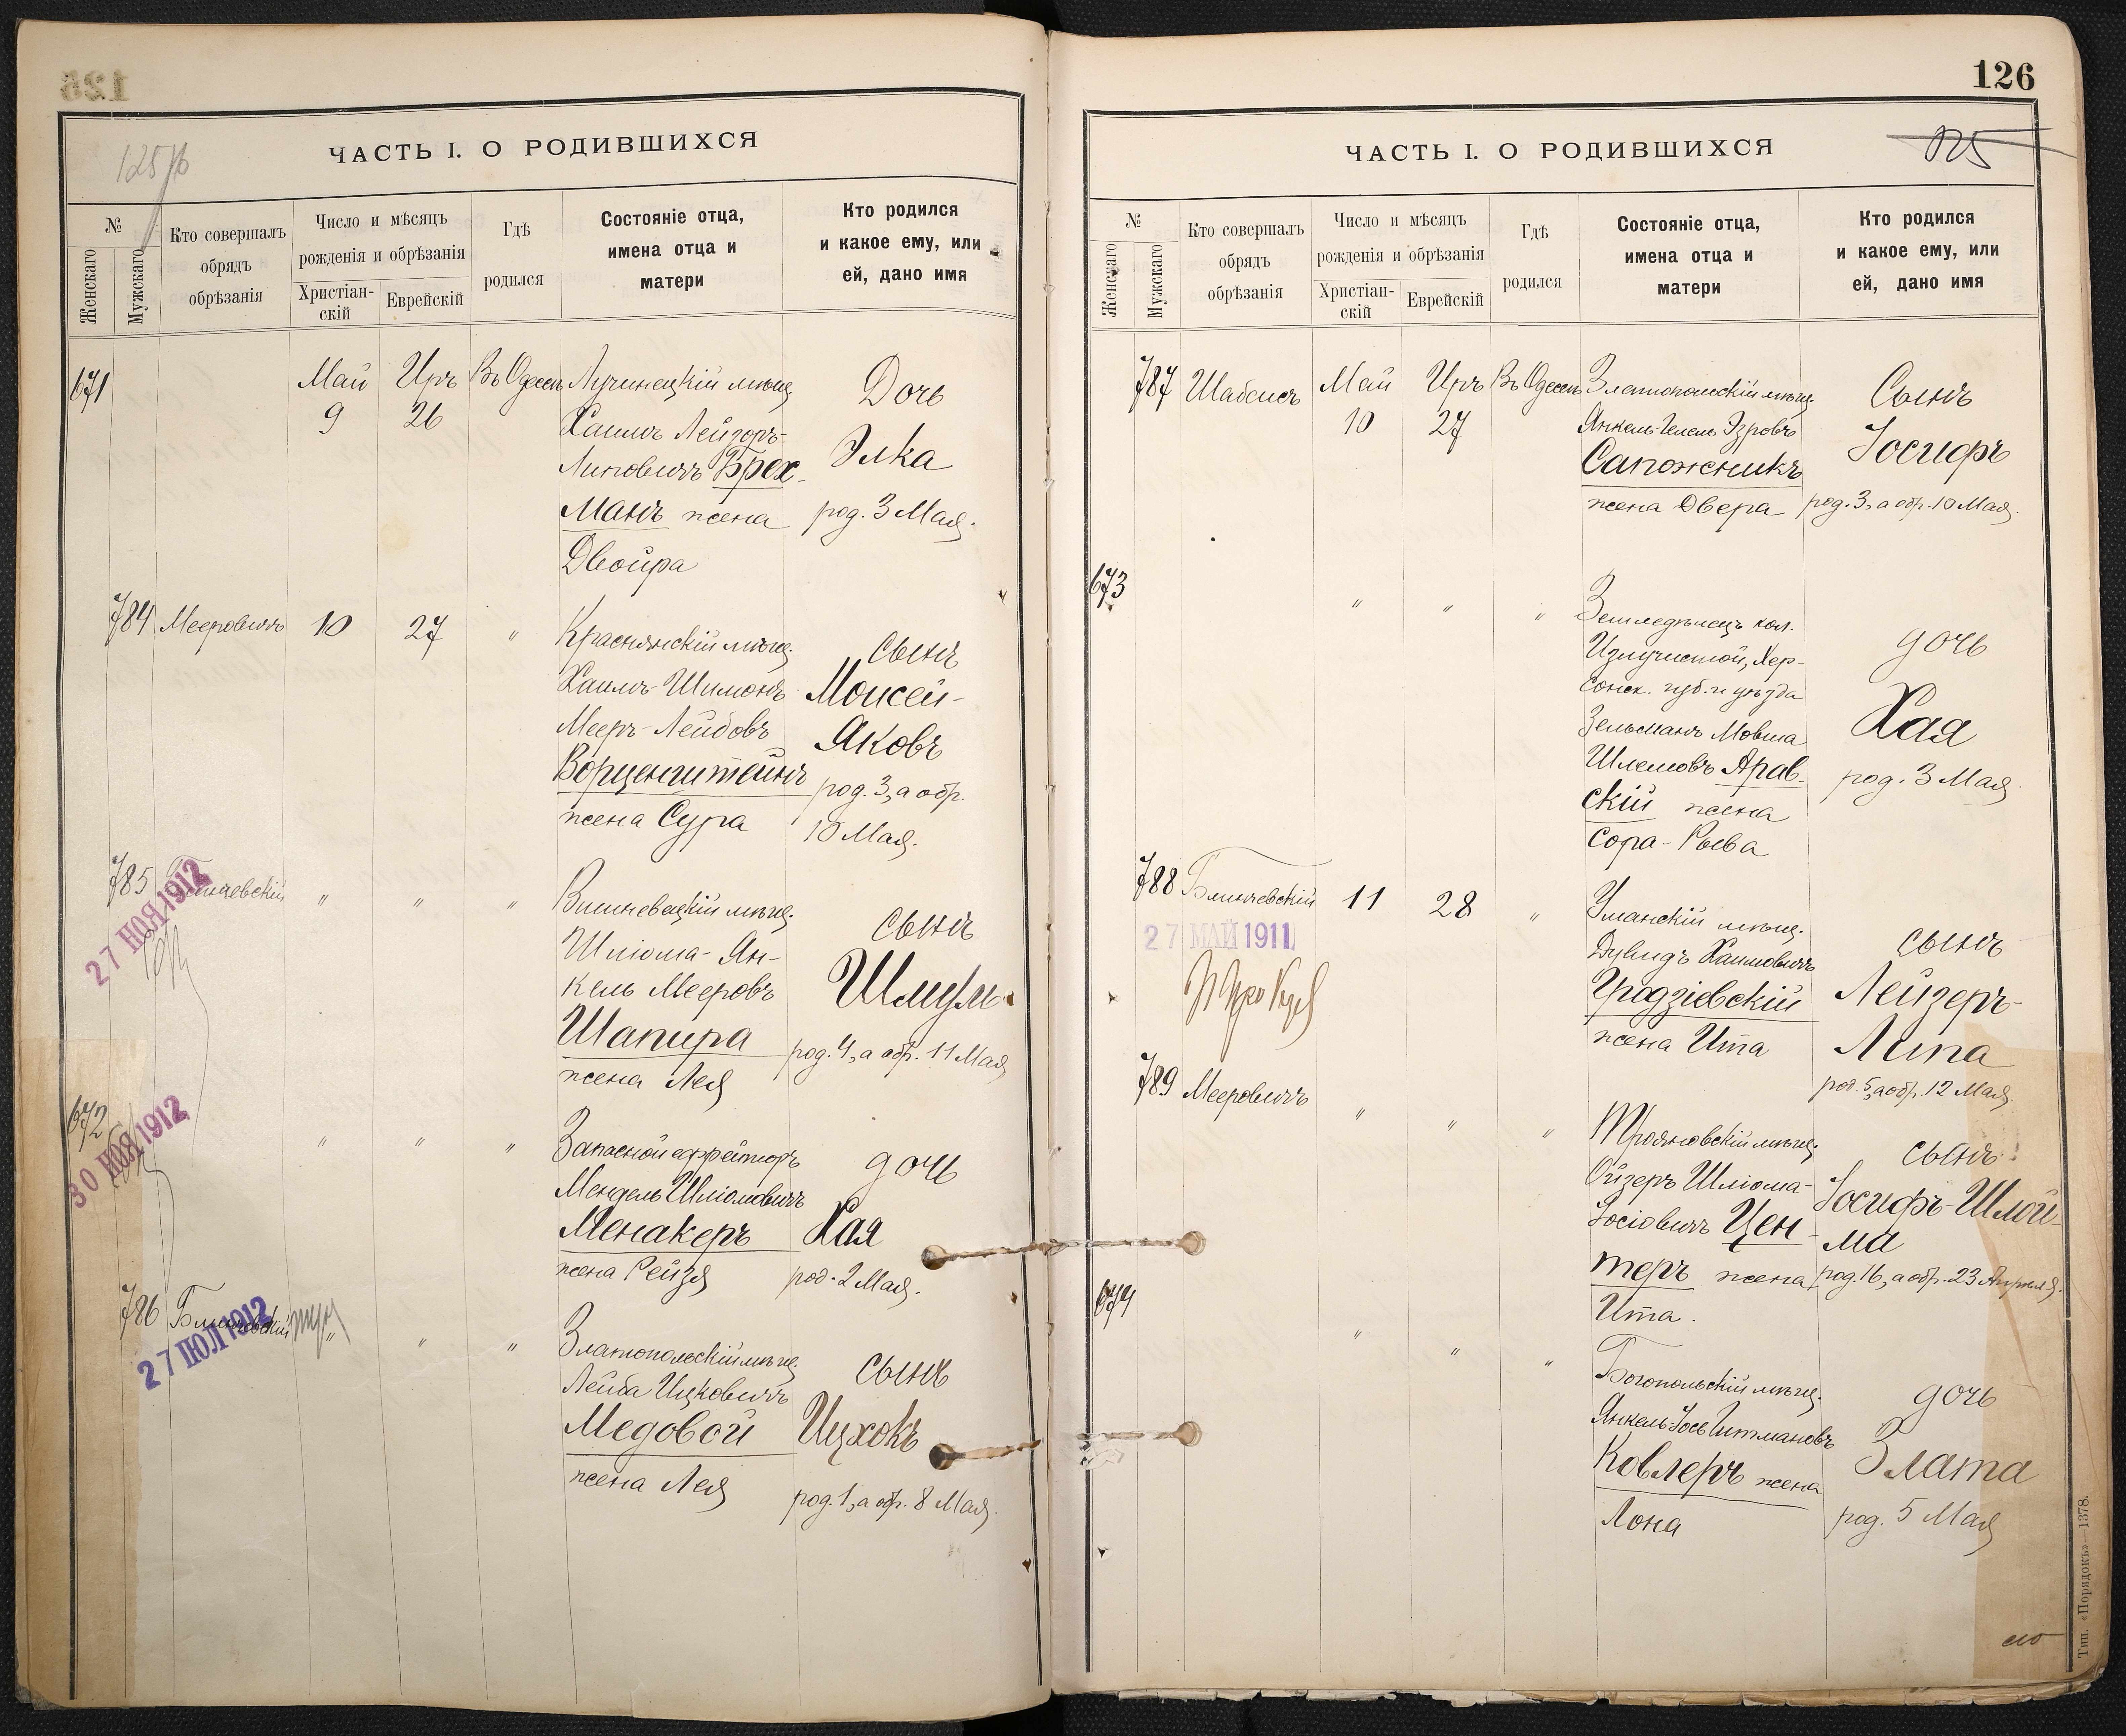 125
125 об
ЧАСТЬ I. О РОДИВШИХСЯ
№
Женскаго
Мужскаго
Кто совершалъ
обрядъ
обрѣзанія
Число и мѣсяцъ
рожденія и обрѣзанія
Христіан-
скій
Еврейскій
Гдѣ
родился
Состояніе отца,
имена отца и
матери
Кто родился
и какое ему, или
ей, дано имя
671
Май
9
Иръ
26
Въ Одессѣ
Лучинецкій мѣщ.
Хаимъ Лейзоръ-
Липовичъ Брех-
манъ жена
Двойра
Дочь
Элка
род. 3 Мая.
784
Мееровичъ
10
27
"
Краснянскій мѣщ.
Хаимъ-Шимонъ
Мееръ-Лейбовъ
Ворценгитейнъ
жена Сура
сынъ
Моисей-
Яковъ
род. 3, а обр.
10 Мая.
785
Блинчевскій
27 НОЯ 1912
"
"
"
Вишневецкій мѣщ.
Шліома-Ян-
кель Мееровъ
Шапира
жена Лея
сынъ
Шмуль
род. 4, а обр. 11 Мая
672
30 НОЯ 1912
"
"
"
Запасной ефрейторъ
Мендель Шліомовичъ
Менакеръ
жена Рейзя
дочь
Хая
род. 2 Мая.
786
Блинчевскій
27 ІЮЛ 1912
"
"
"
Златопольскій мѣщ.
Лейба Ицковичъ
Медовой
жена Лея
сынъ
Ицхокъ
род. 1, а обр. 8 Мая.
126
125
ЧАСТЬ I. О РОДИВШИХСЯ
№
Женскаго
Мужскаго
Кто совершалъ
обрядъ
обрѣзанія
Число и мѣсяцъ
рожденія и обрѣзанія
Христіан-
скій
Еврейскій
Гдѣ
родился
Состояніе отца,
имена отца и
матери
Кто родился
и какое ему, или
ей, дано имя
787
Шабсисъ
Май
10
Иръ
27
Въ Одессѣ
Златопольскій мѣщ.
Янкель-Телель Эзровъ
Сапожникъ
жена Двера
Сынъ
Іосифъ
род. 3, а обр. 10 Мая.
673
"
"
"
Земледѣлецъ кол.
Излучистой, Хер-
сонск. губ. и уѣзда
Зельманъ Мовша
Шлемовъ Арав-
скій жена
Сора-Рыва
дочь
Хая
род. 3 Мая.
788
Блинчевскій
27 МАЙ 1911
11
28
"
Уманскій мѣщ.
Дувидъ Хаимовичъ
Гродзіевскій
жена Ита
сынъ
Лейзеръ-
Липа
род. 5, а обр. 12 Мая.
789
Мееровичъ
"
"
"
Трояновскій мѣщ.
Ойзеръ Шліома-
Іосіовичъ Цен-
теръ жена
Ита.
сынъ
Іосифъ-Шлой-
ма
род. 16, а обр. 23 Апрѣля.
674
"
"
"
Богопольскій мѣщ.
Янкель-Іось Гитмановъ
Ковлеръ жена
Лона
дочь
Злата
род. 5 Мая
Тип. «Порядокъ»—1378.